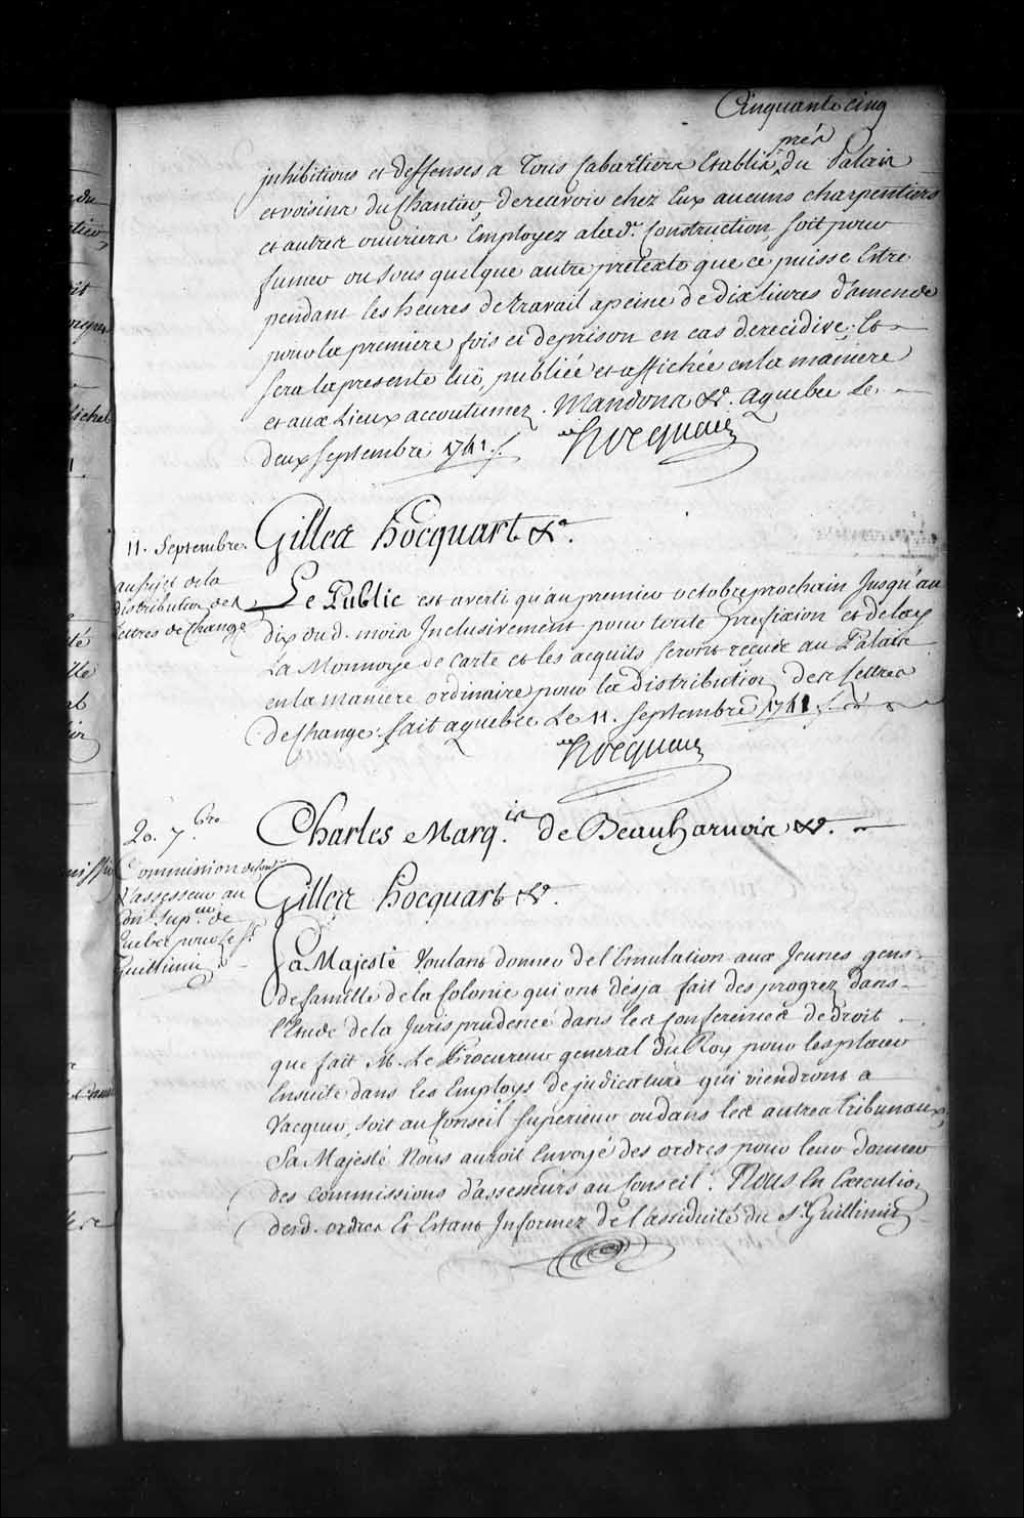 Cinquante cinq
près
inhibitions et deffenses a Tous Cabartiers Etablis du Palais
et voisins du Chantier, de recevoir chez Eux aucuns charpentiers
et autres ouvriers Employez a lad.e Construction, soit pour
fumer ou sous quelque autre pretexte que ce puisse Estre
pendant les heures de travail a peine de dix Livres d'amende
pour la premiere fois et de prison en cas de recidive. Et
sera la presente lüe, publiée et affichée en la maniere
et aux Lieux accoutumez. Mandons &a. a quebec Le
deux septembre 1741./.
Hocquart
11. Septembre.
Gilles hocquart &a.
au sujet de la
distribution des
Lettres de Change
Le Public est averti qu'au premier octobre prochain Jusqu'au
dix dud. mois Inclusivement pour toute prefixion et delay
La Monnoye de Carte et les acquits seront reçus au Palais
en la maniere ordinaire pour la distribution des Lettres
de Change. fait a quebec Le 11. septembre 1741./.
Hocquart
20. 7.bre
Charles Marq.is de Beauharnois &a.
Commission
d'assesseur au
Con.l Sup.eur de
Quebec pour Le Sr.
Guillimin
Gilles hocquart &a.
Sa Majesté Voulant donner de l'Emulation aux Jeunes gens
de famille de la Colonie qui ont désja fait des progrez dans
l'Etude de la Jurisprudence dans les conferences de droit
que fait M. Le Procureur general du Roy pour les placer
Ensuite dans les Employs de judicature qui viendront a
Vacquer, soit au Conseil Superieur ou dans les autres Tribunaux,
Sa Majesté Nous auroit Envoyé des ordres pour leur donner
des commissions d'assesseurs au Conseil. Nous En Execution
desd. ordres Et Estant Informez de l'assiduité du Sr. Guillimin